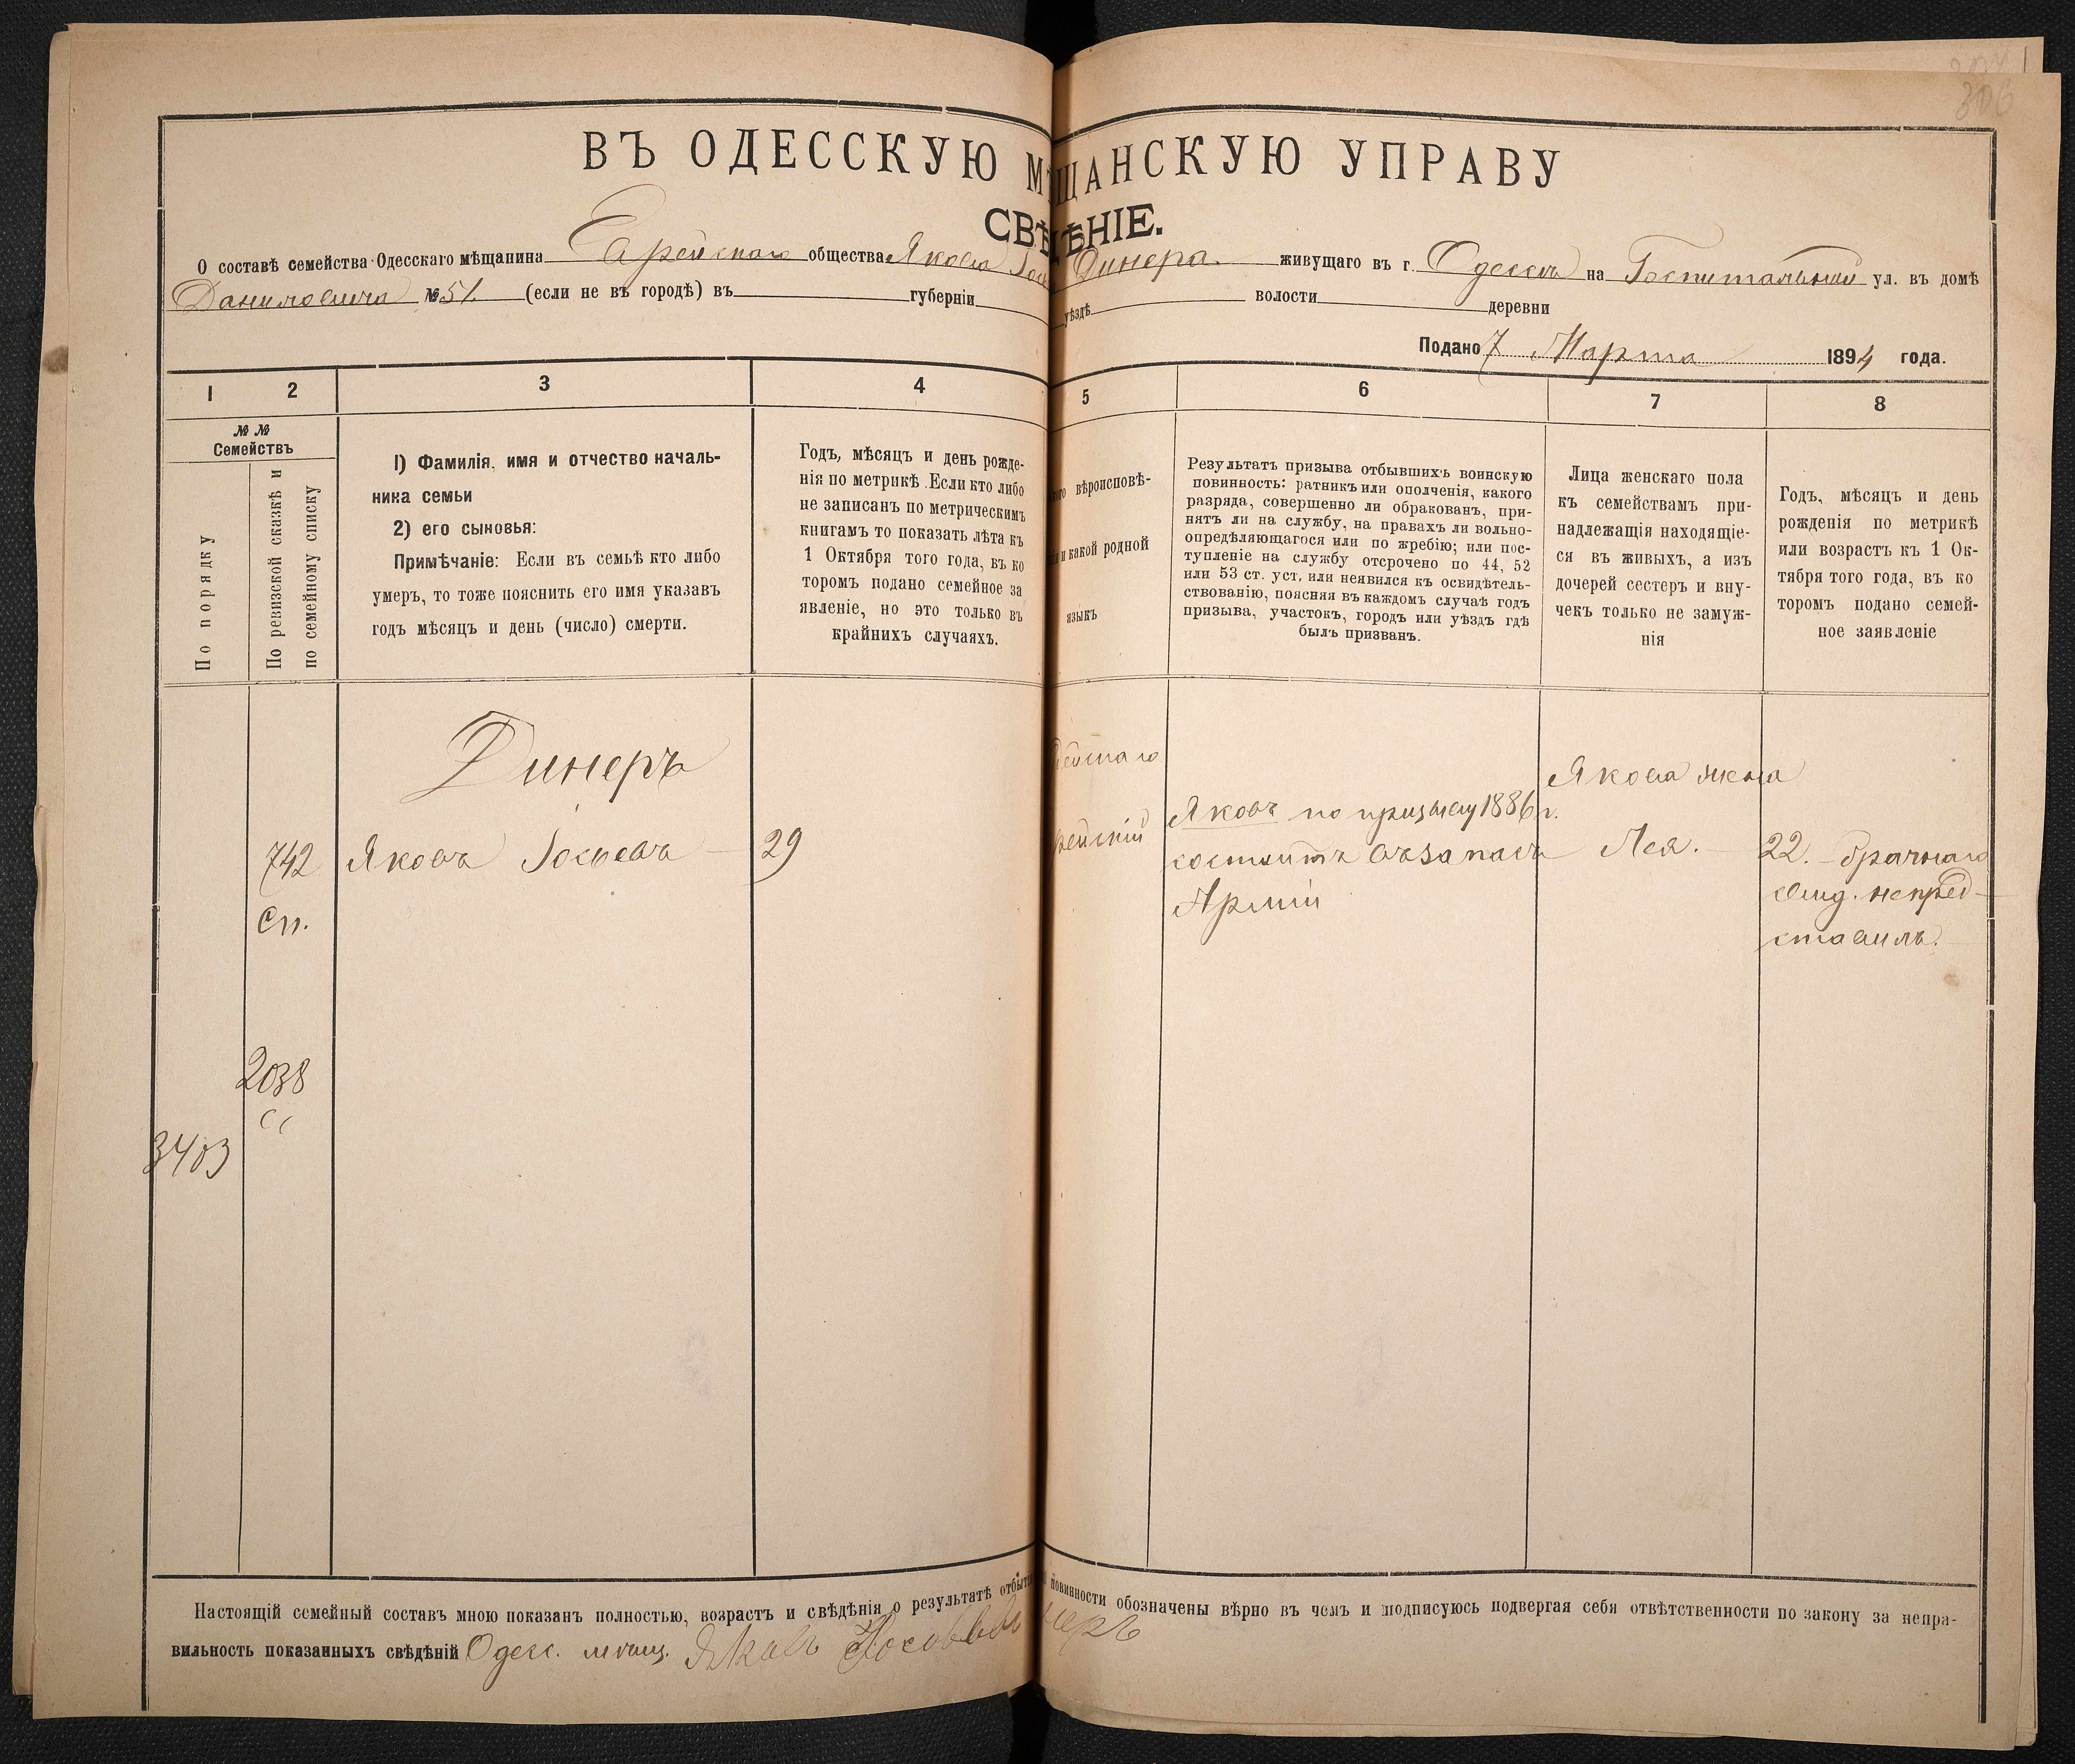 306
ВЪ ОДЕССКУЮ МѢЩАНСКУЮ УПРАВУ
СВѢДѢНІЕ.
О составѣ семейства Одесскаго мѣщанина Еврейскаго общества Якова Динера. живущаго въ г. Одессѣ на Госпитальной ул. въ домѣ
Даниловича № 51. (если не въ городѣ) въ губерніи уѣздѣ волости деревни
Подано 7 Марта 1894 года.
1 2 3 4 5 6 7 8
№ №
Семействъ
По порядку
По ревизской сказкѣ и
по семейному списку
1) Фамилія, имя и отчество началь-
ника семьи
2) его сыновья:
Примѣчаніе: Если въ семьѣ кто либо
умеръ, то тоже пояснить его имя указавъ
годъ мѣсяцъ и день (число) смерти.
Годъ, мѣсяцъ и день рожде-
нія по метрикѣ. Если кто либо
не записанъ по метрическимъ
книгамъ то показать лѣта къ
1 Октября того года, въ ко
торомъ подано семейное за
явленіе, но это только въ
крайнихъ случаяхъ.
вѣроисповѣ-
и какой родной
языкъ
Результатъ призыва отбывшихъ воинскую
повинность: ратникъ или ополченія, какого
разряда, совершенно ли обракованъ, при-
нятъ ли на службу, на правахъ ли вольно-
опредѣляющагося или по жребію; или пос-
тупленіе на службу отсрочено по 44, 52
или 53 ст. уст. или неявился къ освидѣтель-
ствованію, поясняя въ каждомъ случаѣ годъ
призыва, участокъ, городъ или уѣздъ гдѣ
былъ призванъ.
Лица женскаго пола
къ семействамъ при-
надлежащія находящіе-
ся въ живыхъ, а изъ
дочерей сестеръ и вну-
чекъ только не замуж-
нія
Годъ, мѣсяцъ и день
рожденія по метрикѣ
или возрастъ къ 1 Ок-
тября того года, въ ко
торомъ подано семей-
ное заявленіе
Динеръ
742 Яковъ Іосьевъ 29
Сп.
2038
3403
Яковъ по призыву 1886 г.
состоитъ въ запасѣ
Арміи
Якова жена
Лея.
22. брачнаго
свид. непред-
ставилъ.
Настоящій семейный составъ мною показанъ полностью, возрастъ и свѣдѣнія о результатѣ отбытія повинности обозначены вѣрно въ чемъ и подписуюсь подвергая себя отвѣтственности по закону за непра-
вильность показанныхъ свѣдѣній Одесс. мѣщ. Яковъ